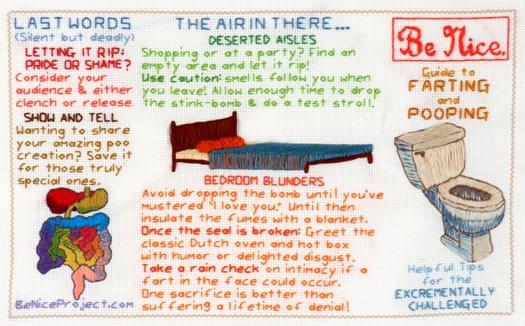 LAST WORDS
(Silent but deadly)
LETTING IT RIP:
PRIDE OR SHAME?
Consider your
audience & either
clench or release.
SHOW AND TELL
Wanting to share
your amazing poo
creation? Save it
for those truly
special ones.
BeNiceProject.com
THE AIR IN THERE...
DESERTED AISLES
Shopping or at a party? Find an
empty area and let it rip!
Use caution: smells follow you when
you leave! Allow enough time to drop
the stink-bomb & do a test stroll.
BEDROOM BLUNDERS
Avoid dropping the bomb until you've
mustered "I love you." Until then
insulate the fumes with a blanket.
Once the seal is broken: Greet the
classic Dutch oven and hot box
with humor or delighted disgust.
Take a rain check on intimacy if a
fart in the face could occur.
One sacrifice is better than
suffering a lifetime of denial!
Be Nice.
Guide to
FARTING
and
POOPING
Helpful Tips
for the
EXCREMENTALLY
CHALLENGED